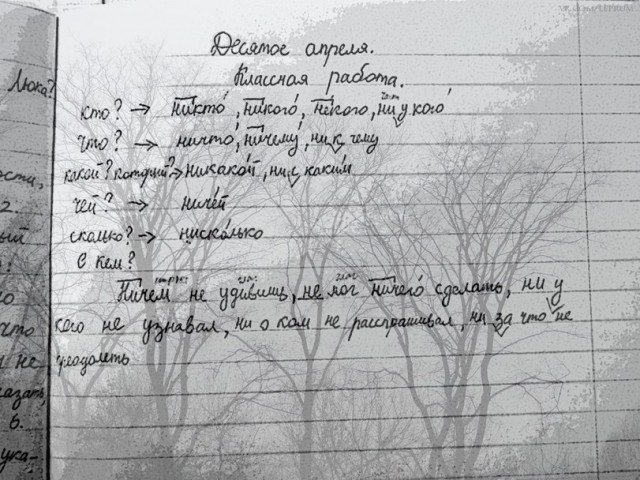 Десятое апреля.
Классная работа.
Люка?
кто? → никто, никого, некого, ни у кого
что? → ничто, ничему, ни к чему
какой? который? → никакой, ни с каким
ости,
чей? → ничей
2.
сколько? → нисколько
ый
С кем?
Ничем не удивишь, не мог ничего сделать, ни у
кого не узнавал, ни о ком не расспрашивал, ни за что не
что
преодолеть
и не
казать,
6.
ука-